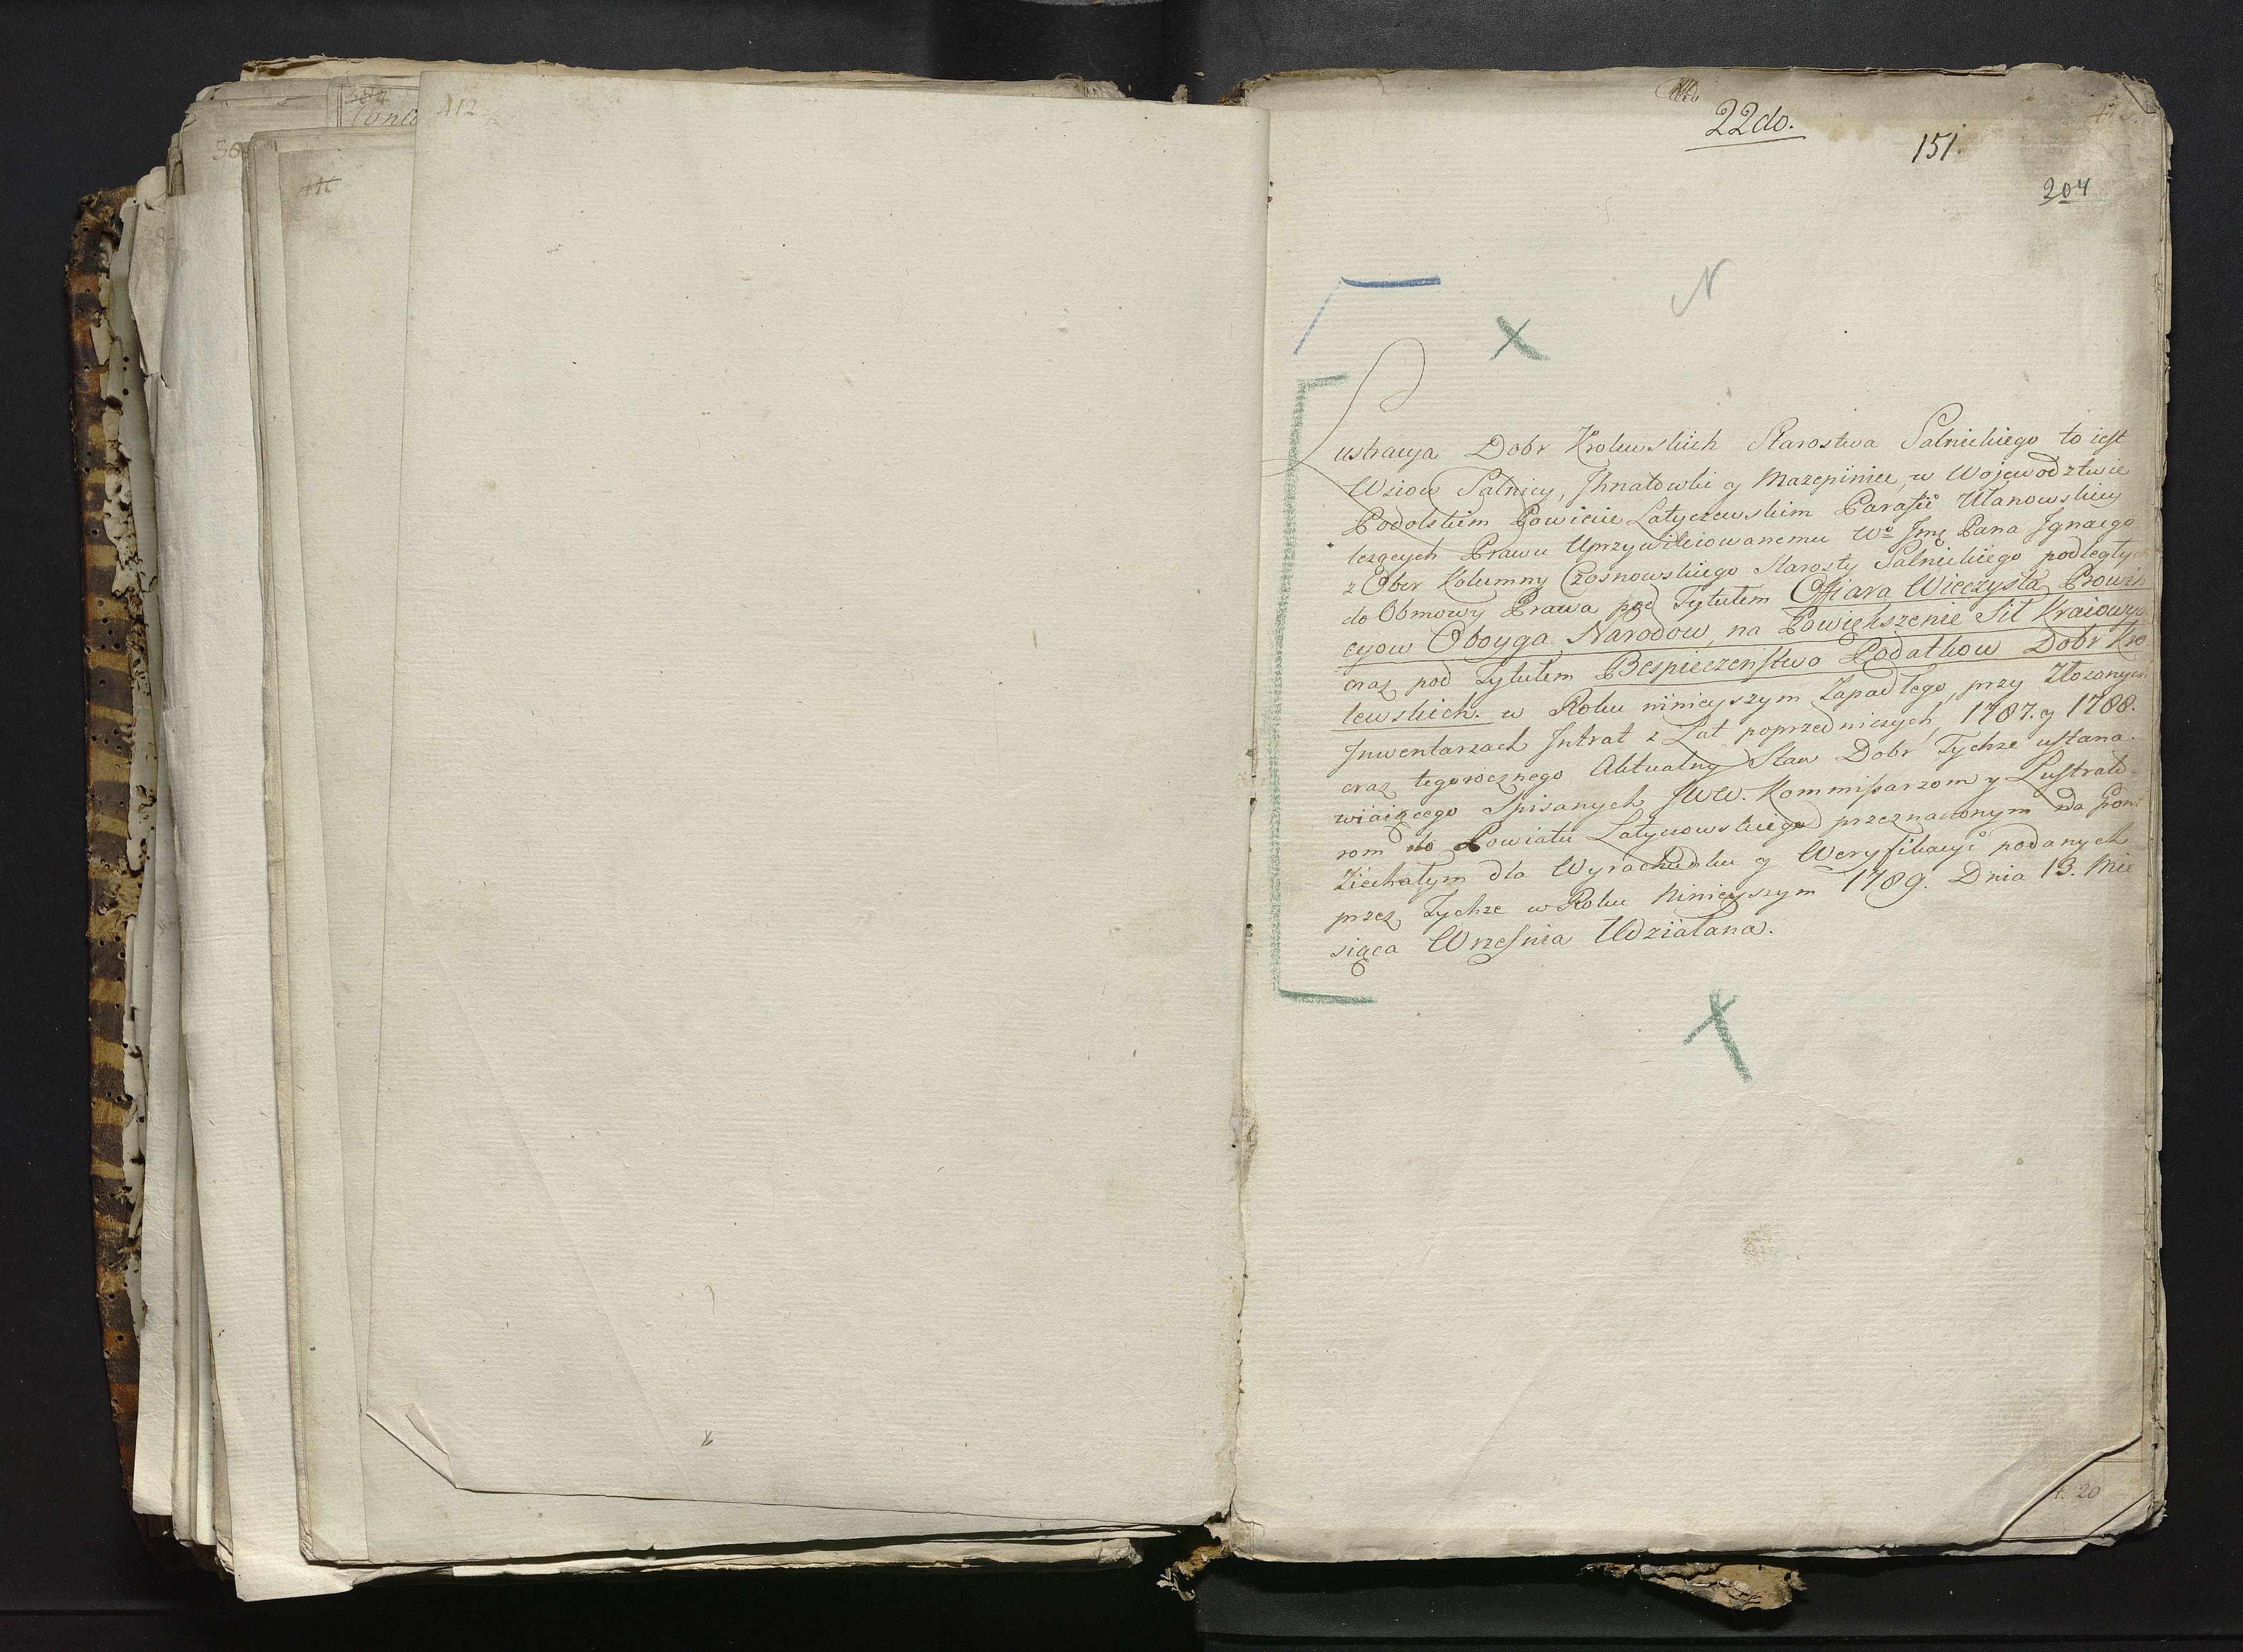 412
22do.
151.
204
N
Lustracya Dobr Krolewskich Starostwa Salnickiego to iest
Wsiow Salnicy, Jhnatowki y Mazepiniec, w Wojewodztwie
Podolskim Powiecie Latyczewskim Parafii Ulanowskiey
lezących Prawu Uprzywileiowanemu Wo Jmę Pana Jgnacgo
z Ober Kolumny Czosnowskiego Starosty Salnickiego podległych
do Obmowy Prawa pod Tytułem Offiara Wieczysta Prowin
cyow Oboyga Narodow, na Powiększenie Sił Kraiowych
oraz pod Tytułem Bespieczenstwo Podatkow Dobr Kro
lewskich. w Roku niniejszym Zapadłego, przy Złozonych
Jnwentarzach Jntrat z Lat poprzedniczych 1787. y 1788.
oraz tegorocznego Aktualny Stan Dobr Tychze ustana-
wiaiącego Spisanych JWW. Kommissarzom y Lustrato-
rom do Powiatu Latyczowskiego przeznaczonym na
Ziechałym dla Wyrachudku y Weryfikacyi podanych
przez Tychze w Roku Niniejszym 1789. Dnia 13. Mie
siąca Wrzesnia Udziałana.
20